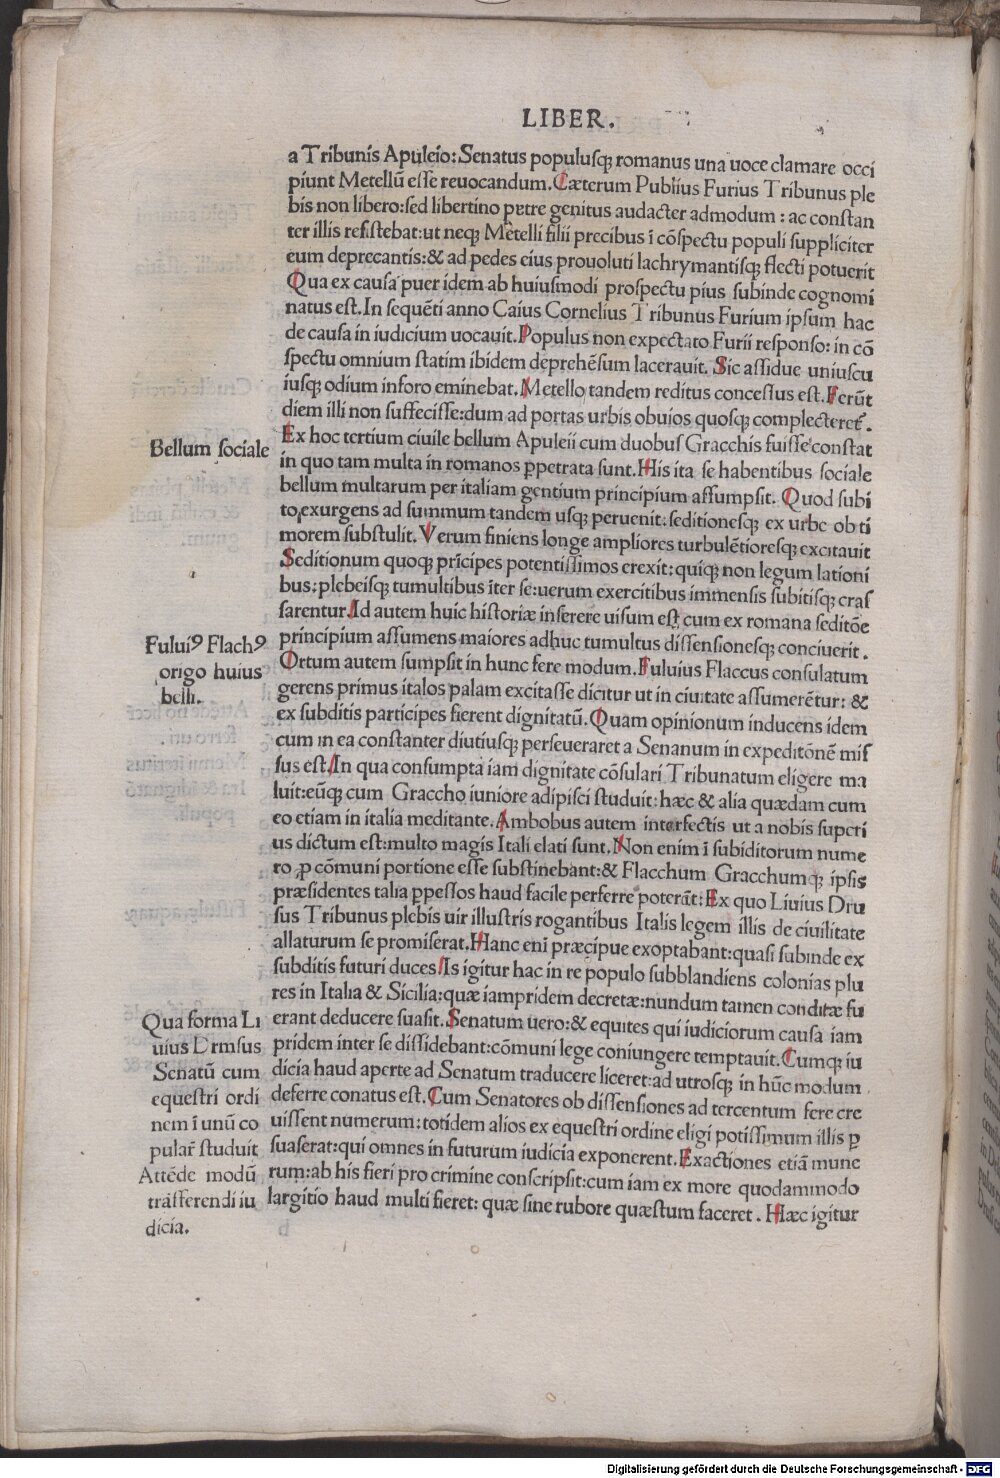 LIBER.
a Tribunis Apuleio:Senatus populusqꝫ romanus una uoce clamare occi
piunt Metellū esse reuocandum.Cæterum Publius Furius Tribunus ple
bis non libero:sed libertino petre genitus audacter admodum : ac constan
ter illis resistebat:ut neqꝫ Metelli filii precibus ī cōspectu populi suppliciter
eum deprecantis:& ad pedes eius prouoluti lachrymantisqꝫ flecti potuerit
Qua ex causa puer idem ab huiusmodi prospectu pius subinde cognomi
natus est.In sequēti anno Caius Cornelius Tribunus Furium ipsum hac
de causa in iudicium uocauit.Populus non expectato Furii responso: in cō
spectu omnium statim ibidem deprehēsum lacerauit. Sic assidue uniuscu
iusqꝫ odium inforo eminebat.Metello tandem reditus concessus est.Ferūt
diem illi non suffecisse:dum ad portas urbis obuios quosqꝫ complecteret̄.
Ex hoc tertium ciuile bellum Apuleii cum duobus Gracchis fuisse constat
Bellum sociale
in quo tam multa in romanos ꝑpetrata sunt.His ita se habentibus sociale
bellum multarum per italiam gentium principium assumpsit. Quod subi
to,exurgens ad summum tandem usqꝫ peruenit:seditionesqꝫ ex urbe ob ti
morem substulit.Verum finiens longe ampliores turbulētioresqꝫ excitauit
Seditionum quoqꝫ prīcipes potentissimos erexit:quiqꝫ non legum lationi
bus:plebeisqꝫ tumultibus īter se:uerum exercitibus immensis subitisqꝫ cras
sarentur.Id autem huic historiæ inserere uisum est cum ex romana seditōe
principium assumens maiores adhuc tumultus dissensionesqꝫ conciuerit.
Fuluiꝰ Flachꝰ
origo huius
belli.
Ortum autem sumpsit in hunc fere modum.Fuluius Flaccus consulatum
gerens primus italos palam excitasse dicitur ut in ciuitate assumerētur: &
ex subditis participes fierent dignitatū.Quam opinionum inducens idem
cum in ea constanter diutiusqꝫ perseueraret a Senanum in expeditōnē mis
sus est.In qua consumpta iam dignitate cōsulari Tribunatum eligere ma
luit:eūqꝫ cum Graccho iuniore adipisci studuit:hæc & alia quædam cum
eo etiam in italia meditante.Ambobus autem interfectis ut a nobis superi
us dictum est:multo magis Itali elati sunt.Non enim ī subiditorum nume
ro ,ꝓ cōmuni portione esse substinebant:& Flacchum Gracchumqꝫ ipsis
præsidentes talia ꝑpessos haud facile perferre poterāt:Ex quo Liuius Dru
sus Tribunus plebis uir illustris rogantibus Italis legem illis de ciuilitate
allaturum se promiserat.Hanc eni præcipue exoptabant:quasi subinde ex
subditis futuri duces.Is igitur hac in re populo subblandiens colonias plu
res in Italia & Sicilia:quæ iampridem decretæ:nundum tamen conditæ fu
Qua forma Li
uius Drmsus
Senatū cum
equestri ordi
nem ī unū co
pularꝭ studuit
Attēde modū
trāsferendi iu
dicia.
erant deducere suasit.Senatum uero:& equites qui iudiciorum causa iam
pridem inter se dissidebant:cōmuni lege coniungere temptauit.Cumqꝫ iu
dicia haud aperte ad Senatum traducere liceret:ad utrosqꝫ in hūc modum
deferre conatus est.Cum Senatores ob dissensiones ad tercentum fere cre
uissent numerum:totidem alios ex equestri ordine eligi potissimum illis ꝑ
suaserat:qui omnes in futurum iudicia exponerent.Exactiones etiā mune
rum:ab his fieri pro crimine conscripsit:cum iam ex more quodammodo
largitio haud multi fieret: quæ sine rubore quæstum faceret . Hæc igitur
Digitalisierung gefördert durch die Deutsche Forschungsgemeinschaft - DFG